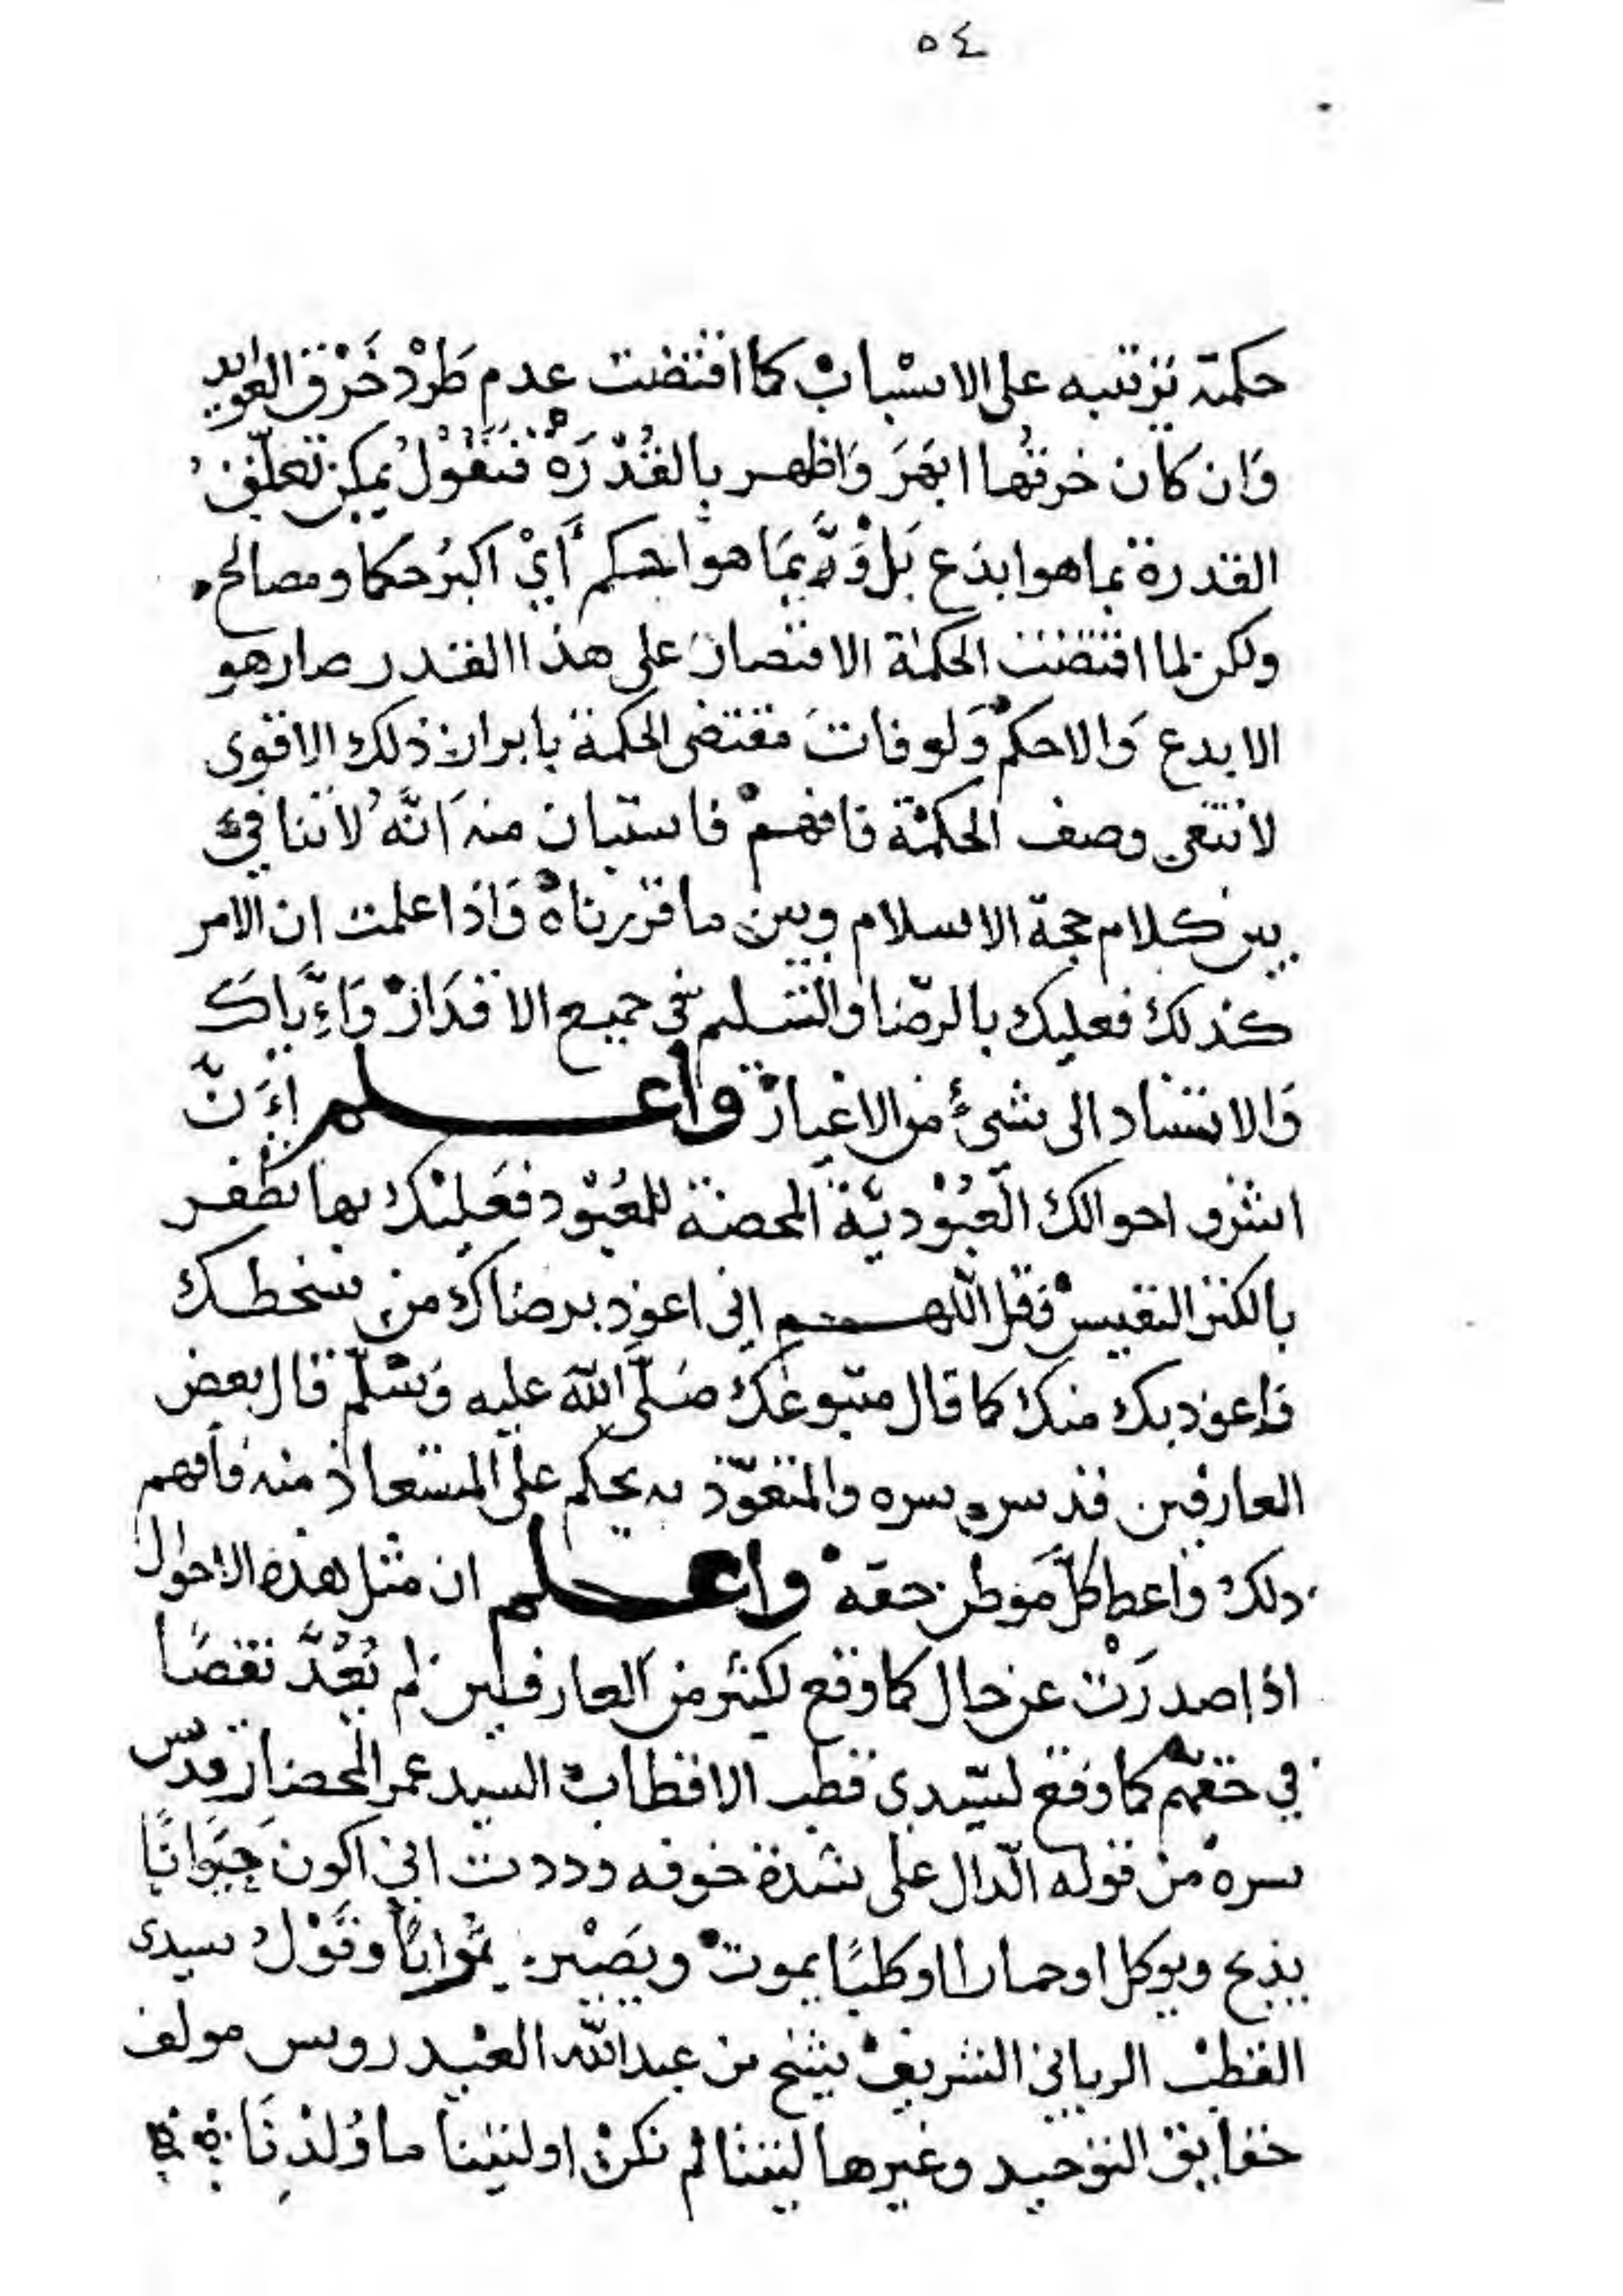 ٥٤
حكمته ترتبه على الاسْبابْ كما اقتضت عدم طَرْد خَرْق العوايد
وَان كان خرقُها ابهَرَ وَاظهر بِالقُدْرَةْ فنَقُوْلُ يمكن تعلّق
القدرة بما هو ابدَع بَلْ وَ بمَا هو احكم أَيْ اكبرُ حكما ومصالح
ولكن لما اقتضت الحكمة الاقتصارَ على هذا القدر صار هو
الابدع وَالاحكمْ وَلو فاتَ مقتضى الحكمة بابراز ذلك الاقوى
لانتفى وصف الحكمْة فافهمْ فاستبان منه اَنَّهُ لاتنافي
بين كلام حجة الاسلام وبين ما قررناهْ وَاذا علمت ان الامر
كذلك فعليك بالرّضا والتسليم في جميع الاقدَارْ وَاِيَّاكَ
وَالاستناد الى شيءٍ من الاغيارْ واعلم اِنَّ
اشرف احوالك الَعُبُوْديّة المحضة للمَعْبُوْد فعَليْك بها تظفر
بالكنز النفيسْ فقل اللهم اني اعوذ برضاك من سخطك
وَاعوذ بك منك كما قال متبوعك صَلَّى اللّه عليه وَسَلّمْ قال بعض
العارفين قدس سره والمتعوّذ به يحكم على المستعاذ منه فافهم
ذلك واعط كلَّ مَوطن حقهْ واعلم ان مثل هذه الاحوال
اذا صدرَتْ عن حال كما وقع لكثير من العارفين لم تُعَدَّ نقصًا
في حقهم كما وقع لسّيدي قطب الاقطابْ السيد عمر المحضار قدس
سرهْ من قوله الّدال على شدة خوفه وددت اني اكون حَيَوَانًا
يذبح ويوكل او حمارا او كلبًا يموتْ ويَصْير تُوابًا وقَوْلُ سيدى
القطبْ الرباني الشريفْ شيخ بن عبداللّه العيْدروس مولف
حقايق التوحيد وغيرها ليتنا لم نكنْ او ليتنا ما وُلِدْنَا